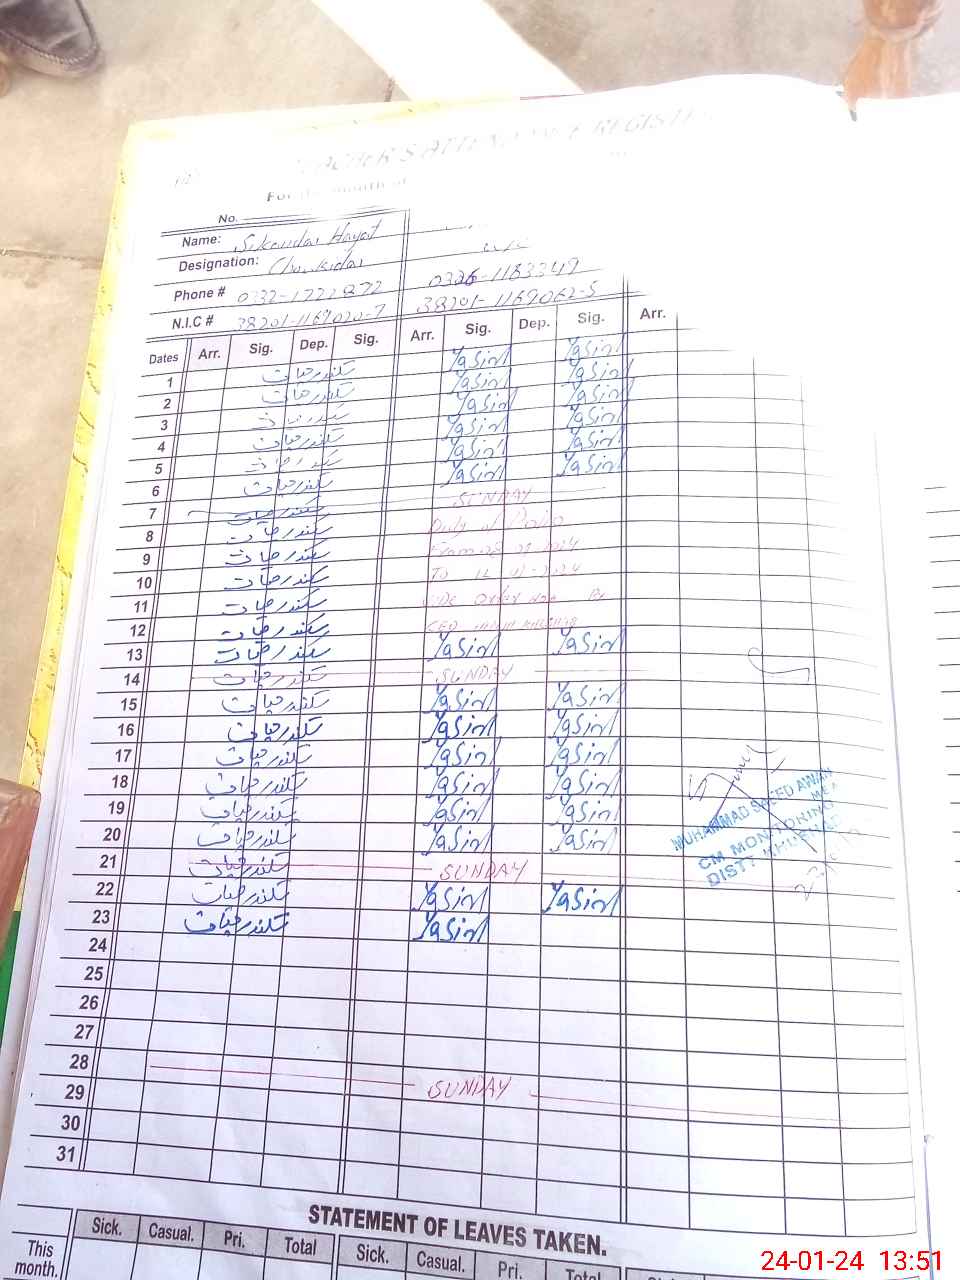 TEACHER'S ATTENDANCE REGISTER
For the month of
No.
Name: Sikandar Hayat
Designation: Chowkidar
Phone # 0332-1721872 0336-1183349
N.I.C # 38201-1169020-7 38201-1169062-5
Dates Arr. Sig. Dep. Sig. Arr. Sig. Dep. Sig. Arr.
1 سکندر حیات Yasin Yasin
2 سکندر حیات Yasin Yasin
3 سکندر حیات Yasin Yasin
4 سکندر حیات Yasin Yasin
5 سکندر حیات Yasin Yasin
6 سکندر حیات Yasin Yasin
7 سکندر حیات SUNDAY
8 سکندر حیات Duty of Polio
9 سکندر حیات From 08-01-2024
10 سکندر حیات To 12-01-2024
11 سکندر حیات Order
12 سکندر حیات CEO
13 سکندر حیات Yasin Yasin
14 سکندر حیات SUNDAY
15 سکندر حیات Yasin Yasin
16 سکندر حیات Yasin Yasin
17 سکندر حیات Yasin Yasin
18 سکندر حیات Yasin Yasin
19 سکندر حیات Yasin Yasin
20 سکندر حیات Yasin Yasin
21 سکندر حیات SUNDAY
22 سکندر حیات Yasin Yasin
23 سکندر حیات Yasin
24
25
26
27
28 SUNDAY
29
30
31
MUHAMMAD SAEED AWAN
MEA
CM MONITORING
DISTT KHUSHAB
STATEMENT OF LEAVES TAKEN.
This month. Sick. Casual. Pri. Total Sick. Casual. Pri. Total
24-01-24 13:51